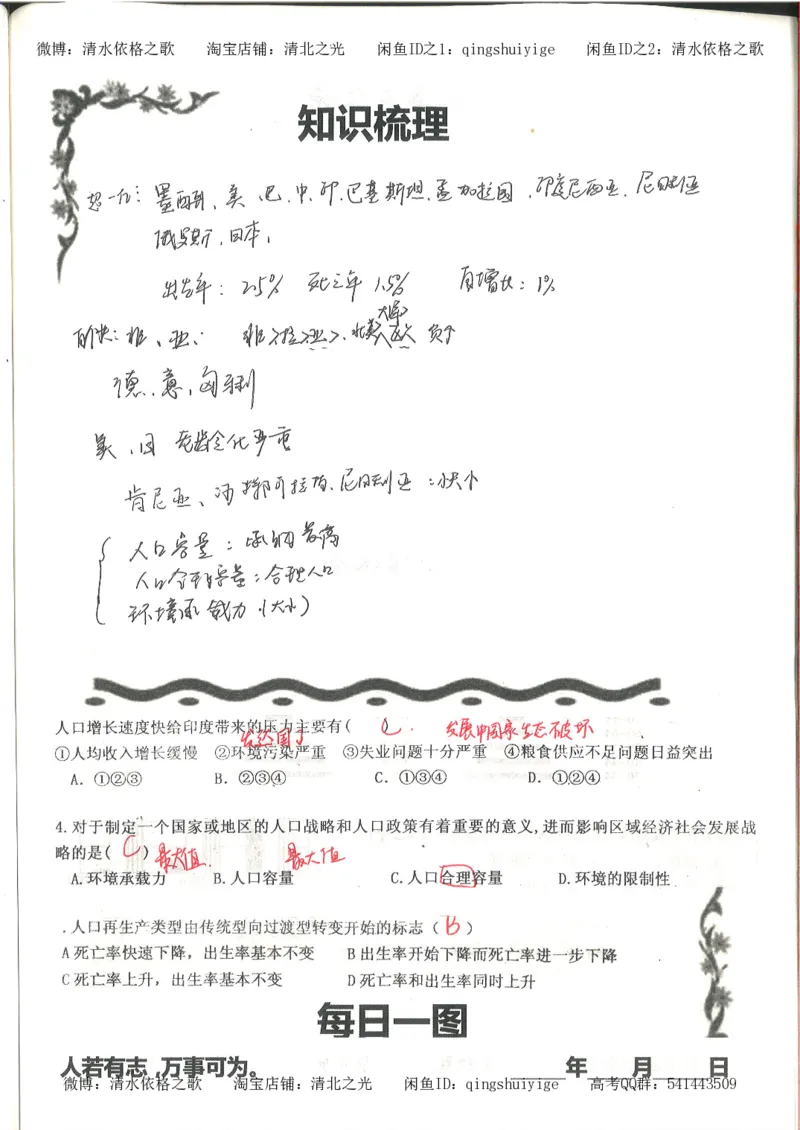 微博：清水依格之歌 淘宝店铺：清北之光 闲鱼ID之1：qingshuiyige 闲鱼ID之2：清水依格之歌
知识梳理
超一亿：墨西哥、美、巴、中、印、巴基斯坦、孟加拉国、印度尼西亚、尼日利亚
俄罗斯、日本，
出生率：2.5% 死亡率 1.5% 自增长：1%
非、亚、 非>拉>亚>
德、意、匈牙利
美、日 老龄化严重
肯尼亚、沙特阿拉伯、尼日利亚：快
人口容量：承纳最高
人口合理容量：合理人口
环境承载力（大小）
人口增长速度快给印度带来的压力主要有( C. ) 发展中国家生态破坏
发达国了
①人均收入增长缓慢 ②环境污染严重 ③失业问题十分严重 ④粮食供应不足问题日益突出
A. ①②③ B. ②③④ C. ①③④ D. ①②④
4.对于制定一个国家或地区的人口战略和人口政策有着重要的意义,进而影响区域经济社会发展战
略的是( C ) 最大值. 最大值
A.环境承载力 B.人口容量 C.人口合理容量 D.环境的限制性
.人口再生产类型由传统型向过渡型转变开始的标志（ B ）
A 死亡率快速下降，出生率基本不变 B 出生率开始下降而死亡率进一步下降
C 死亡率上升，出生率基本不变 D 死亡率和出生率同时上升
每日一图
人若有志,万事可为。 年 月 日
微博：清水依格之歌 淘宝店铺：清北之光 闲鱼ID：qingshuiyige 高考QQ群：541443509